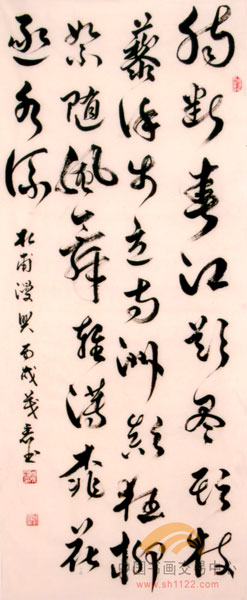 腸斷春江欲盡頭杖
藜徐步立芳洲顛狂柳
絮隨風舞輕薄桃花
逐水流
杜甫漫興丙戌
中国书画交易中心
www.sh1122.com